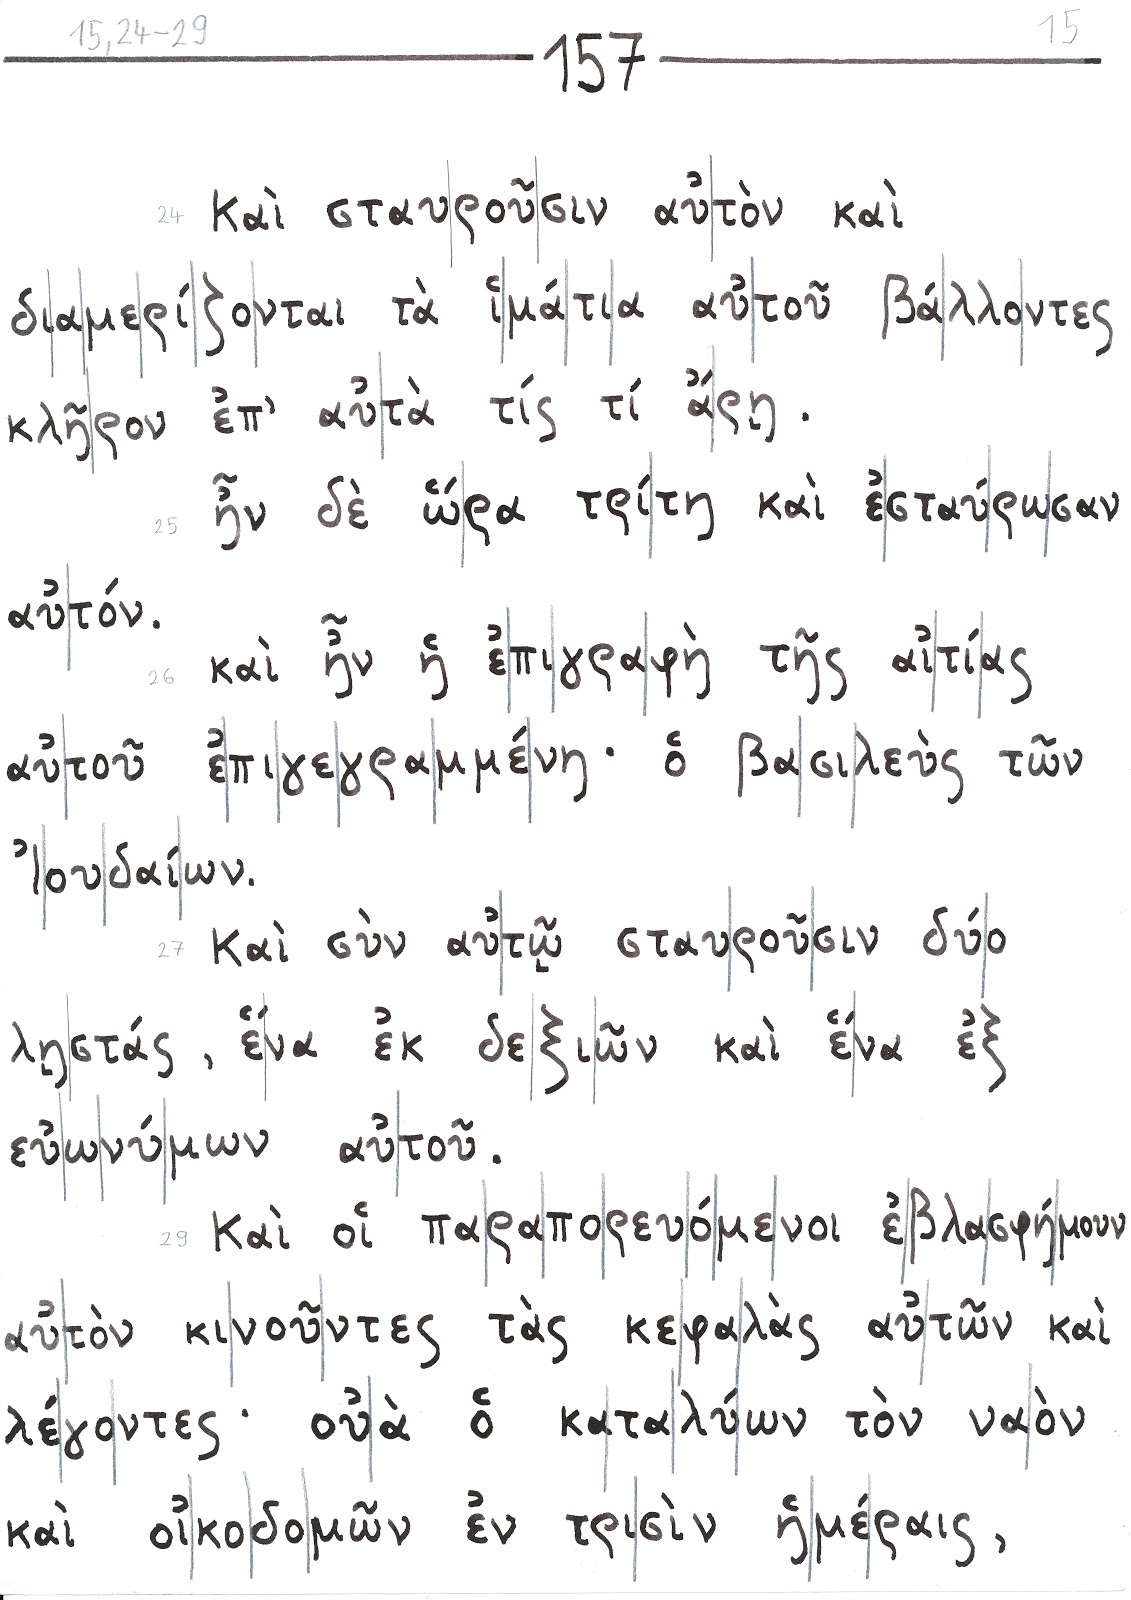 15,24-29 157 15
24 Καὶ σταυροῦσιν αὐτὸν καὶ
διαμερίζονται τὰ ἱμάτια αὐτοῦ βάλλοντες
κλῆρον ἐπ' αὐτὰ τίς τί ἄρῃ.
25 ἦν δὲ ὥρα τρίτη καὶ ἐσταύρωσαν
αὐτόν.
26 καὶ ἦν ἡ ἐπιγραφὴ τῆς αἰτίας
αὐτοῦ ἐπιγεγραμμένη· ὁ βασιλεὺς τῶν
Ἰουδαίων.
27 Καὶ σὺν αὐτῷ σταυροῦσιν δύο
λῃστάς, ἕνα ἐκ δεξιῶν καὶ ἕνα ἐξ
εὐωνύμων αὐτοῦ.
29 Καὶ οἱ παραπορευόμενοι ἐβλασφήμουν
αὐτὸν κινοῦντες τὰς κεφαλὰς αὐτῶν καὶ
λέγοντες· οὐὰ ὁ καταλύων τὸν ναὸν
καὶ οἰκοδομῶν ἐν τρισὶν ἡμέραις,